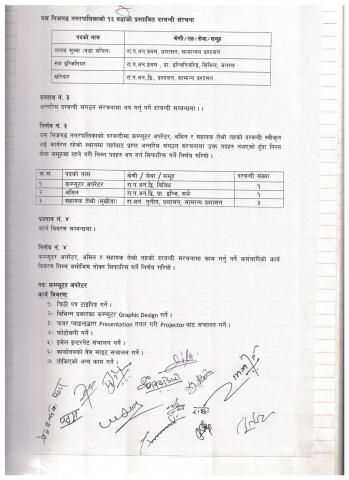 यस निजगढ नगरपालिकाको १३ वडाहरुको प्रस्तावित दरबन्दी संरचना
पदको नाम श्रेणी/तह/सेवा/समुह
नायब सुब्बा (वडा सचिव) रा.प.अनं.प्रथम, प्रशासन, सामान्य प्रशासन
सव इन्जिनियर रा.प.अनं.प्रथम, प्रा. इन्जिनियरिङ्ग, सिभिल, जनरल
खरिदार रा.प.अनं.द्वि., प्रशासन, सामान्य प्रशासन
प्रस्ताव नं. ३
अन्तरिम दरबन्दी संगठन संरचनामा थप गर्नु पर्ने दरबन्दी सम्बन्धमा ।।
निर्णय नं. ३
यस निजगढ नगरपालिकाको दरबन्दीमा कम्प्युटर अपरेटर, अमिन र सहायक तेश्रो तहको दरबन्दी स्वीकृत
भई कार्यरत रहेको तहाँबाट प्राप्त अन्तरिम संगठन संरचनामा उक्त पदहरु नभएको हुँदा निम्न
सेवा समुहमा रहने गरी निम्न पदहरु थप गर्न सिफारिस गर्ने निर्णय गरियो ।
क्र.स. पदको नाम श्रेणी / सेवा / समुह दरबन्दी संख्या
१ कम्प्युटर अपरेटर रा.प.अनं.द्वि, विविध १
२ अमिन रा.प.अनं.द्वि, प्रा. इन्जि, सर्भे १
३ सहायक तेश्रो (मुखिया) रा.प.अनं. तृतीय, प्रशासन, सामान्य प्रशासन ३
प्रस्ताव नं. ४
कार्य विवरण सम्बन्धमा ।
निर्णय नं. ४
कम्प्युटर अपरेटर, अमिन र सहायक तेश्रो तहको दरबन्दी संरचनामा काम गर्नु पर्ने कर्मचारीको कार्य
विवरण निम्न बमोजिम तोक्न सिफारिस गर्ने निर्णय गरियो ।
पद: कम्प्युटर अपरेटर
कार्य विवरण:
१) चिठी पत्र टाइपिङ गर्ने ।
२) विभिन्न प्रकारका कम्प्युटर Graphic Design गर्ने ।
३) पावर प्वाइन्टद्वारा Presentation तयार गरी Projector बाट संचालन गर्ने ।
४) फोटोकपी गर्ने ।
५) इमेल इन्टरनेट संचालन गर्ने ।
६) कार्यालयको वेब साइट संचालन गर्ने ।
७) तोकिएको अन्य काम गर्ने ।